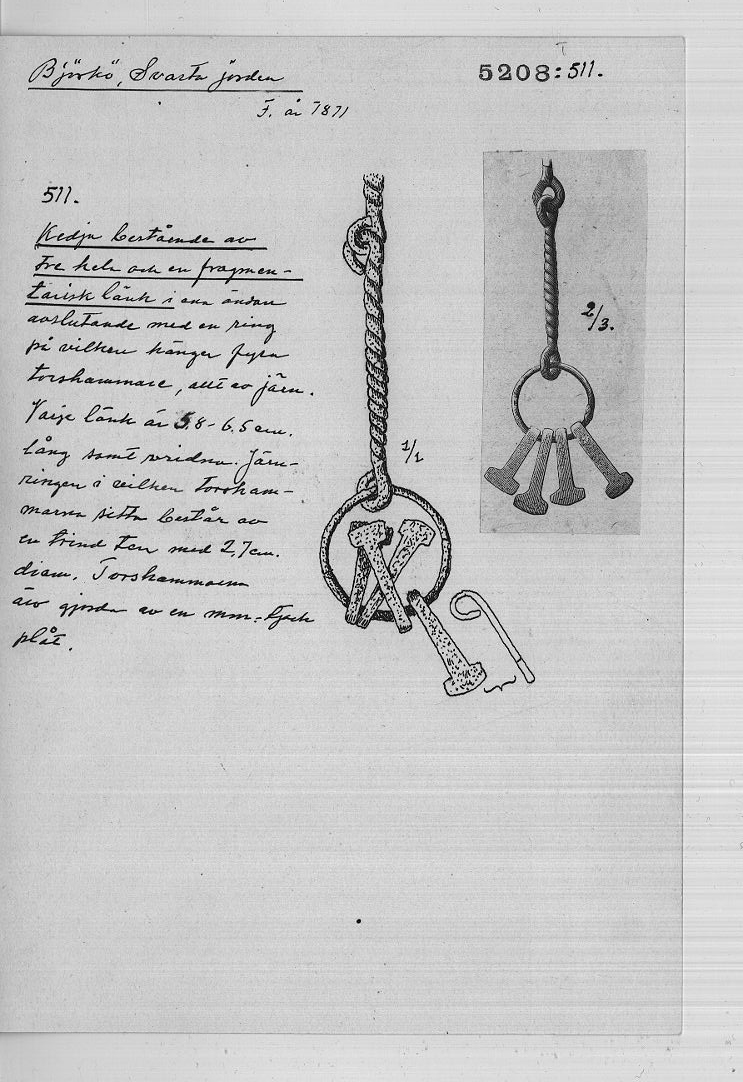 Björkö, Svarta jorden
5208:511.
F. år 1871
511.
Kedja bestående av
tre hela och en fragmen-
tarisk länk i ena ändan
avslutande med en ring
på vilken hänger fyra
torshammare, allt av järn.
Varje länk är 5.8-6.5 cm.
lång samt vriden. Järn-
ringen i vilken torsham-
marna sitta består av
en trind ten med 2,7 cm.
diam. Torshammarna
äro gjorda av en mm:tjock
plåt.
1/1
2/3.